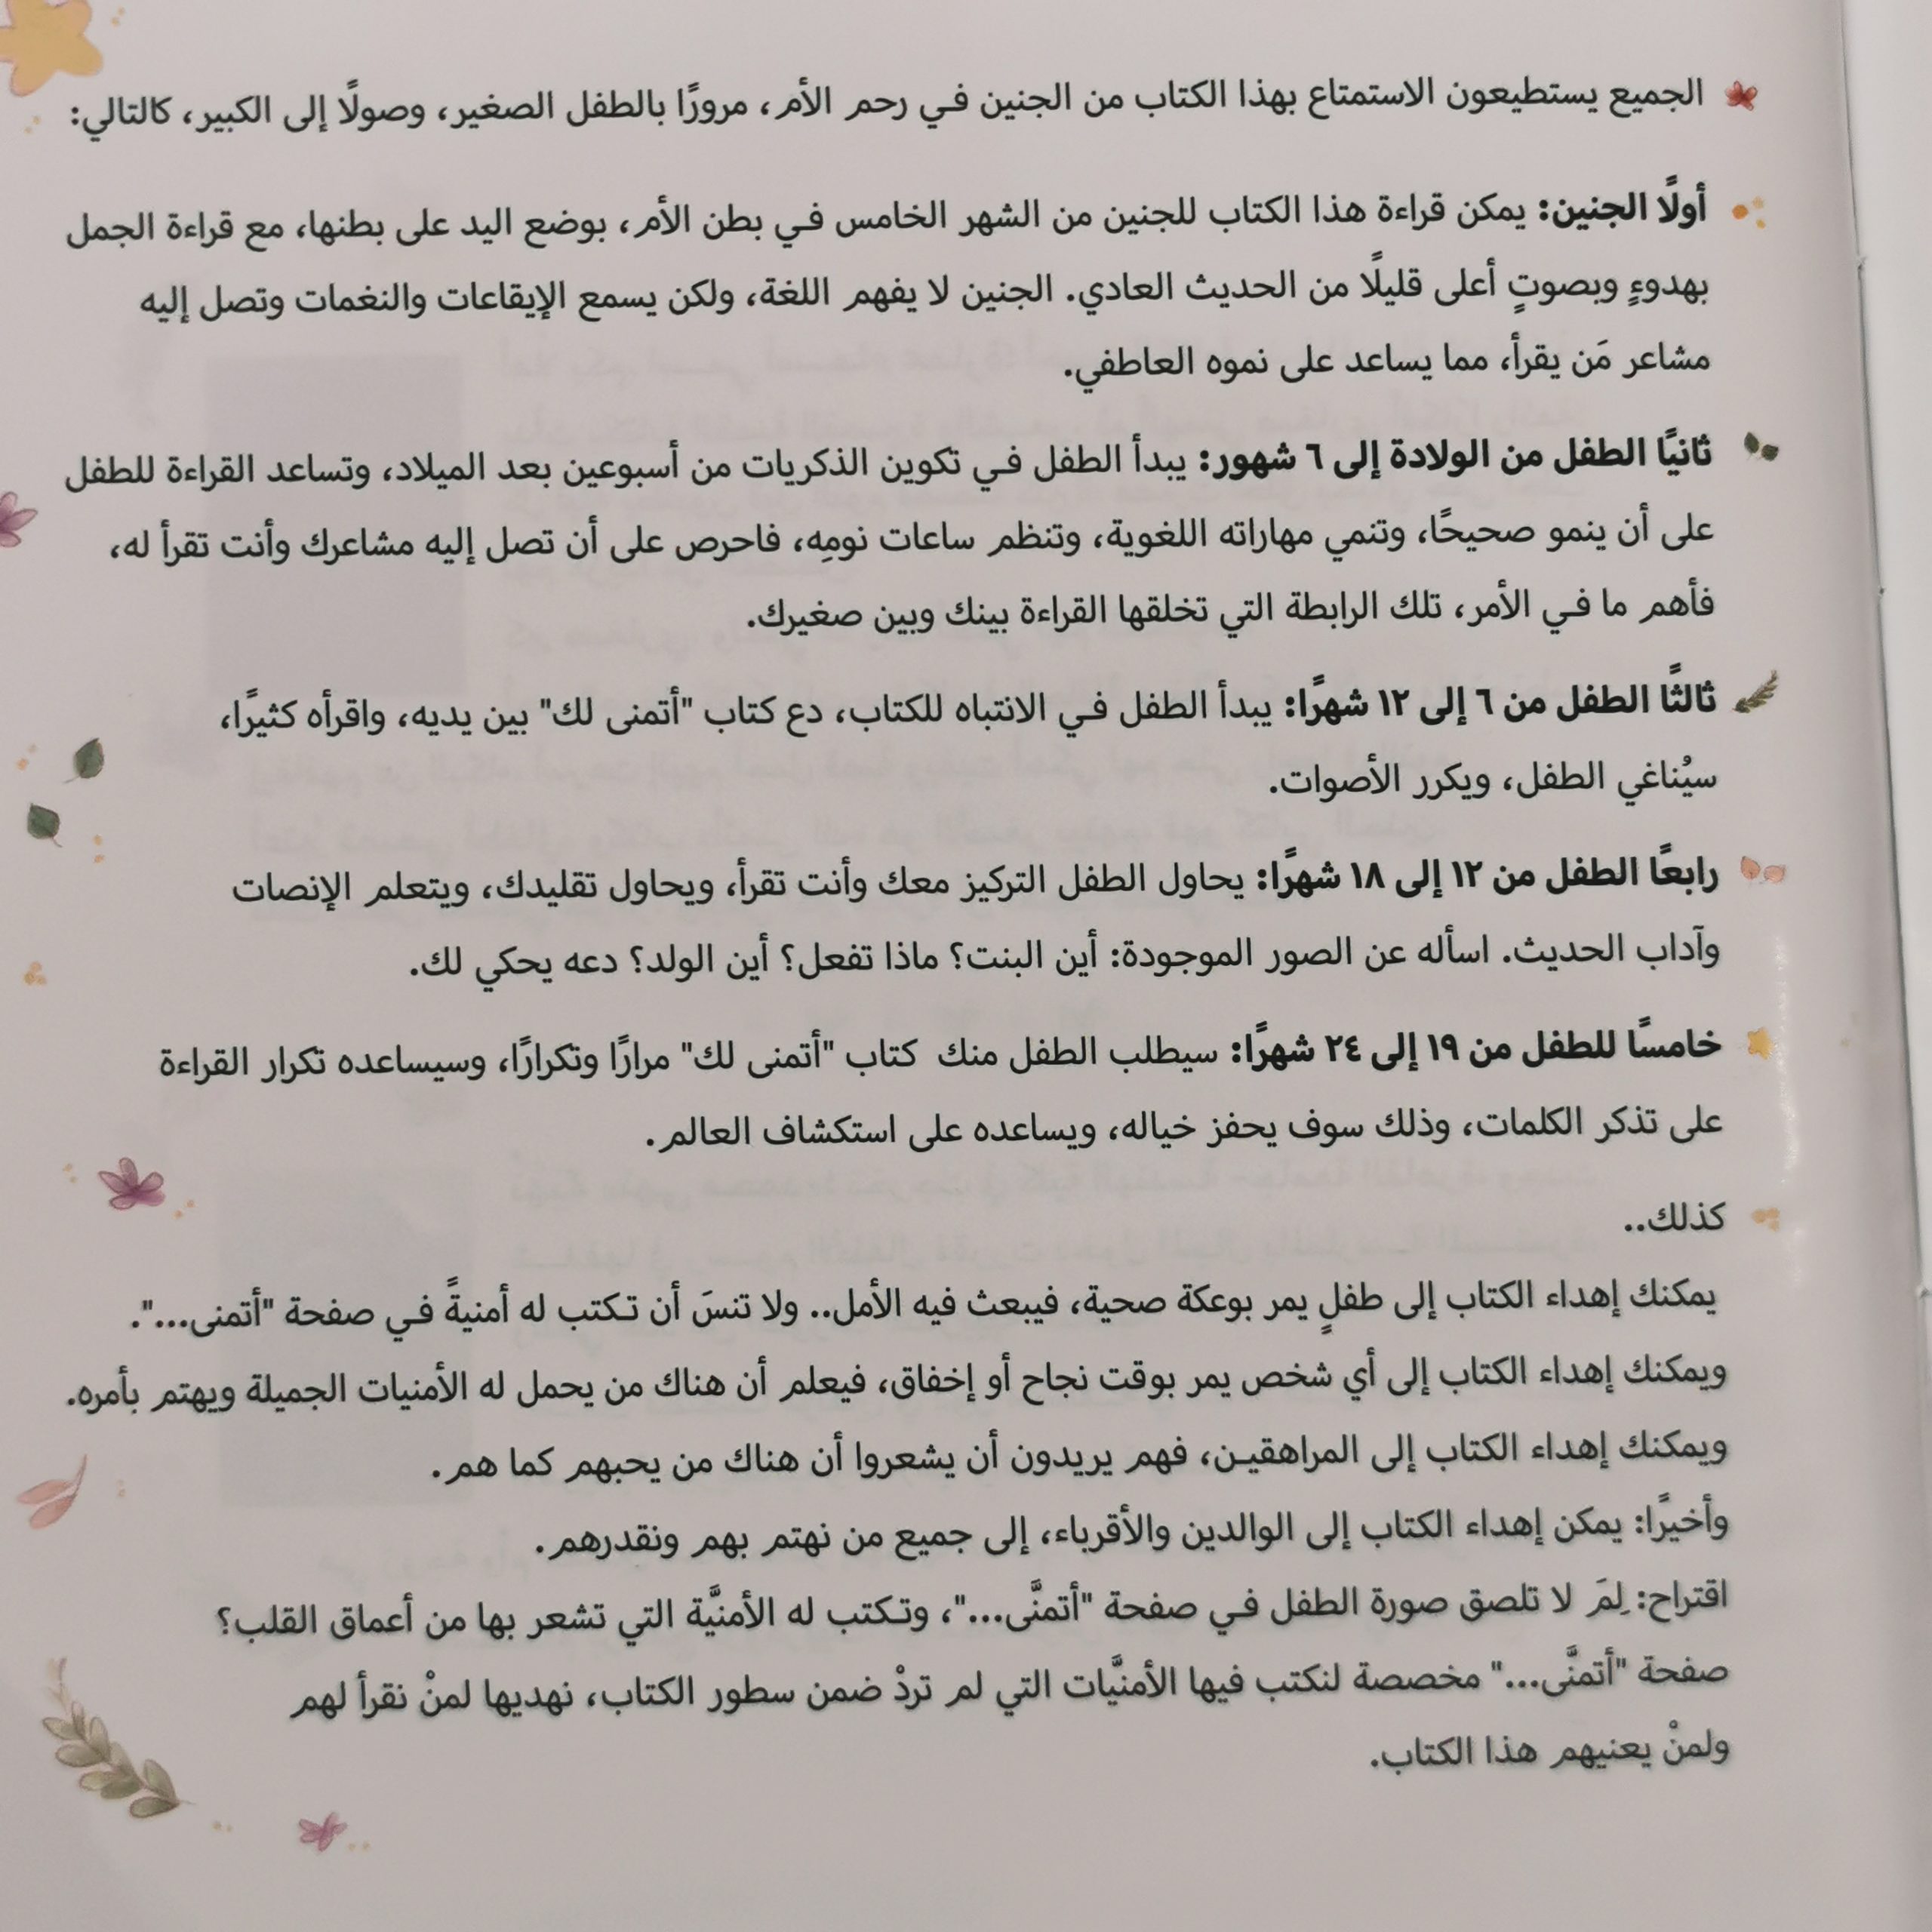 الجميع يستطيعون الاستمتاع بهذا الكتاب من الجنين في رحم الأم، مرورًا بالطفل الصغير، وصولًا إلى الكبير، كالتالي:
أولًا الجنين: يمكن قراءة هذا الكتاب للجنين من الشهر الخامس في بطن الأم، بوضع اليد على بطنها، مع قراءة الجمل
بهدوءٍ وبصوتٍ أعلى قليلًا من الحديث العادي. الجنين لا يفهم اللغة، ولكن يسمع الإيقاعات والنغمات وتصل إليه
مشاعر مَن يقرأ، مما يساعد على نموه العاطفي.
ثانيًا الطفل من الولادة إلى ٦ شهور: يبدأ الطفل في تكوين الذكريات من أسبوعين بعد الميلاد، وتساعد القراءة للطفل
على أن ينمو صحيحًا، وتنمي مهاراته اللغوية، وتنظم ساعات نومِه، فاحرص على أن تصل إليه مشاعرك وأنت تقرأ له،
فأهم ما في الأمر، تلك الرابطة التي تخلقها القراءة بينك وبين صغيرك.
ثالثًا الطفل من ٦ إلى ١٢ شهرًا: يبدأ الطفل في الانتباه للكتاب، دع كتاب "أتمنى لك" بين يديه، واقرأه كثيرًا،
سيُناغي الطفل، ويكرر الأصوات.
رابعًا الطفل من ١٢ إلى ١٨ شهرًا: يحاول الطفل التركيز معك وأنت تقرأ، ويحاول تقليدك، ويتعلم الإنصات
وآداب الحديث. اسأله عن الصور الموجودة: أين البنت؟ ماذا تفعل؟ أين الولد؟ دعه يحكي لك.
خامسًا للطفل من ١٩ إلى ٢٤ شهرًا: سيطلب الطفل منك كتاب "أتمنى لك" مرارًا وتكرارًا، وسيساعده تكرار القراءة
على تذكر الكلمات، وذلك سوف يحفز خياله، ويساعده على استكشاف العالم.
كذلك..
يمكنك إهداء الكتاب إلى طفلٍ يمر بوعكة صحية، فيبعث فيه الأمل.. ولا تنسَ أن تكتب له أمنيةً في صفحة "أتمنى...".
ويمكنك إهداء الكتاب إلى أي شخص يمر بوقت نجاح أو إخفاق، فيعلم أن هناك من يحمل له الأمنيات الجميلة ويهتم بأمره.
ويمكنك إهداء الكتاب إلى المراهقين، فهم يريدون أن يشعروا أن هناك من يحبهم كما هم.
وأخيرًا: يمكن إهداء الكتاب إلى الوالدين والأقرباء، إلى جميع من نهتم بهم ونقدرهم.
اقتراح: لِمَ لا تلصق صورة الطفل في صفحة "أتمنَّى..."، وتكتب له الأمنيَّة التي تشعر بها من أعماق القلب؟
صفحة "أتمنَّى..." مخصصة لنكتب فيها الأمنيَّات التي لم تردْ ضمن سطور الكتاب، نهديها لمنْ نقرأ لهم
ولمنْ يعنيهم هذا الكتاب.